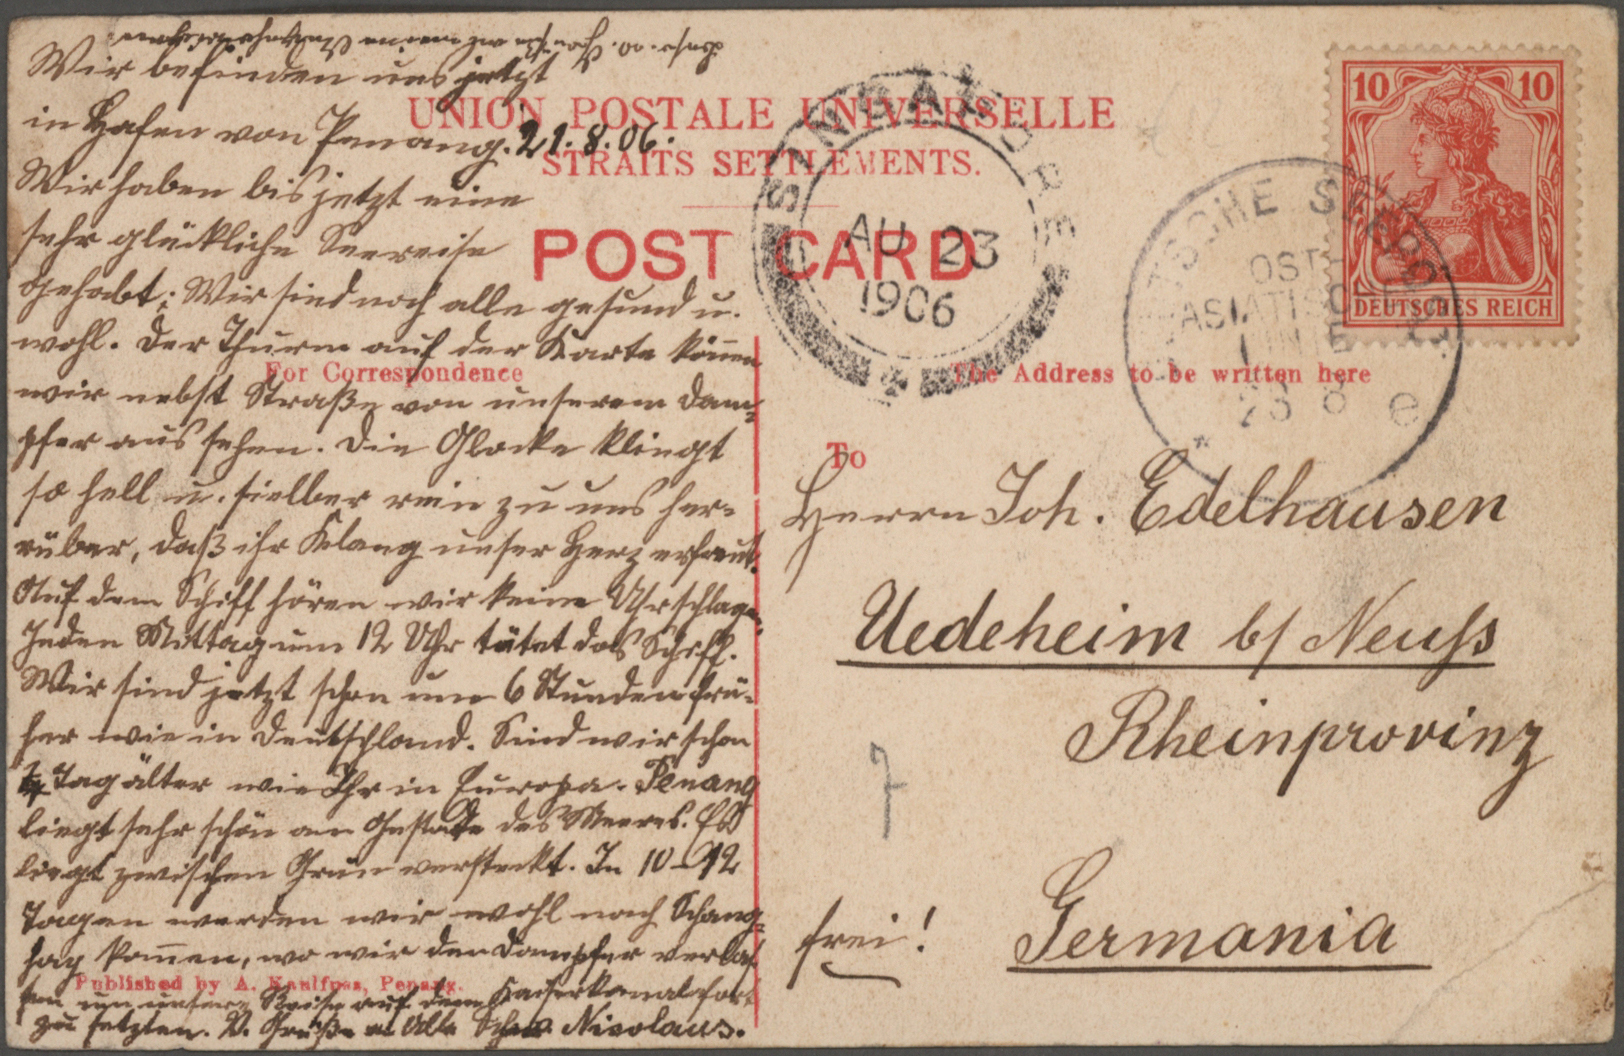 Wir befinden uns jetzt
in Hafen von Penang. 21.8.06.
Wir haben bis jetzt eine
sehr glückliche Seereise
gehabt; Wir sind noch alle gesund u.
wohl. Der Thurm auf der Karte können
wir nebst Straße von unserem Dam-
pfer aus sehen. Die Glocke klingt
so hell u. silber rein zu uns her-
rüber, daß ihr Klang unser Herz erfreut.
Auf dem Schiff hören wir keine Uhrschlagen.
Jeden Mittag um 12 Uhr tütet das Schiff.
Wir sind jetzt schon um 6 Stunden frü-
her wie in Deutschland. Sind wir schon
¼ Tag älter wie Ihr in Europa. Penang
liegt sehr schön am Gestade des Meeres. Es
liegt zwischen Grün versteckt. In 10-12
Tagen werden wir wohl nach Schang-
hay kommen, wo wir den Dampfer verlas-
sen um unsere Reise auf dem Kaiserkanal fort
zu setzten. V. Grüße an Alle Nicolaus.
UNION POSTALE UNIVERSELLE
STRAITS SETTLEMENTS.
POST CARD
For Correspondence
The Address to be written here
To
Herrn Joh. Edelhausen
Uedeheim b/ Neuss
Rheinprovinz
frei! Germania
7
Published by A. Kaulfuss, Penang.
SINGAPORE
AU 23
1906
DEUTSCHE SEEPOST
OST-
ASIATISCHE
LINIE
23 8
e
10 10
DEUTSCHES REICH